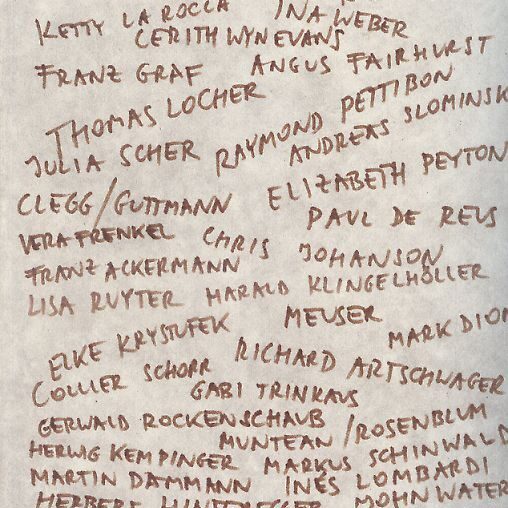 KETTY LA ROCCA INA WEBER
CERITH WYN EVANS
FRANZ GRAF ANGUS FAIRHURST
THOMAS LOCHER RAYMOND PETTIBON
JULIA SCHER ANDREAS SLOMINSK
CLEGG/GUTTMANN ELIZABETH PEYTON
VERA FRENKEL CHRIS JOHANSON PAUL DE REUS
FRANZ ACKERMANN
LISA RUYTER HARALD KLINGELHÖLLER
MEUSER
ELKE KRYSTUFEK MARK DION
COLLIER SCHORR RICHARD ARTSCHWAGER
GABI TRINKAUS
GERWALD ROCKENSCHAUB
MUNTEAN/ROSENBLUM
HERWIG KEMPINGER MARKUS SCHINWALD
MARTIN DAMMANN INÉS LOMBARDI
HERBERT JOHN WATER